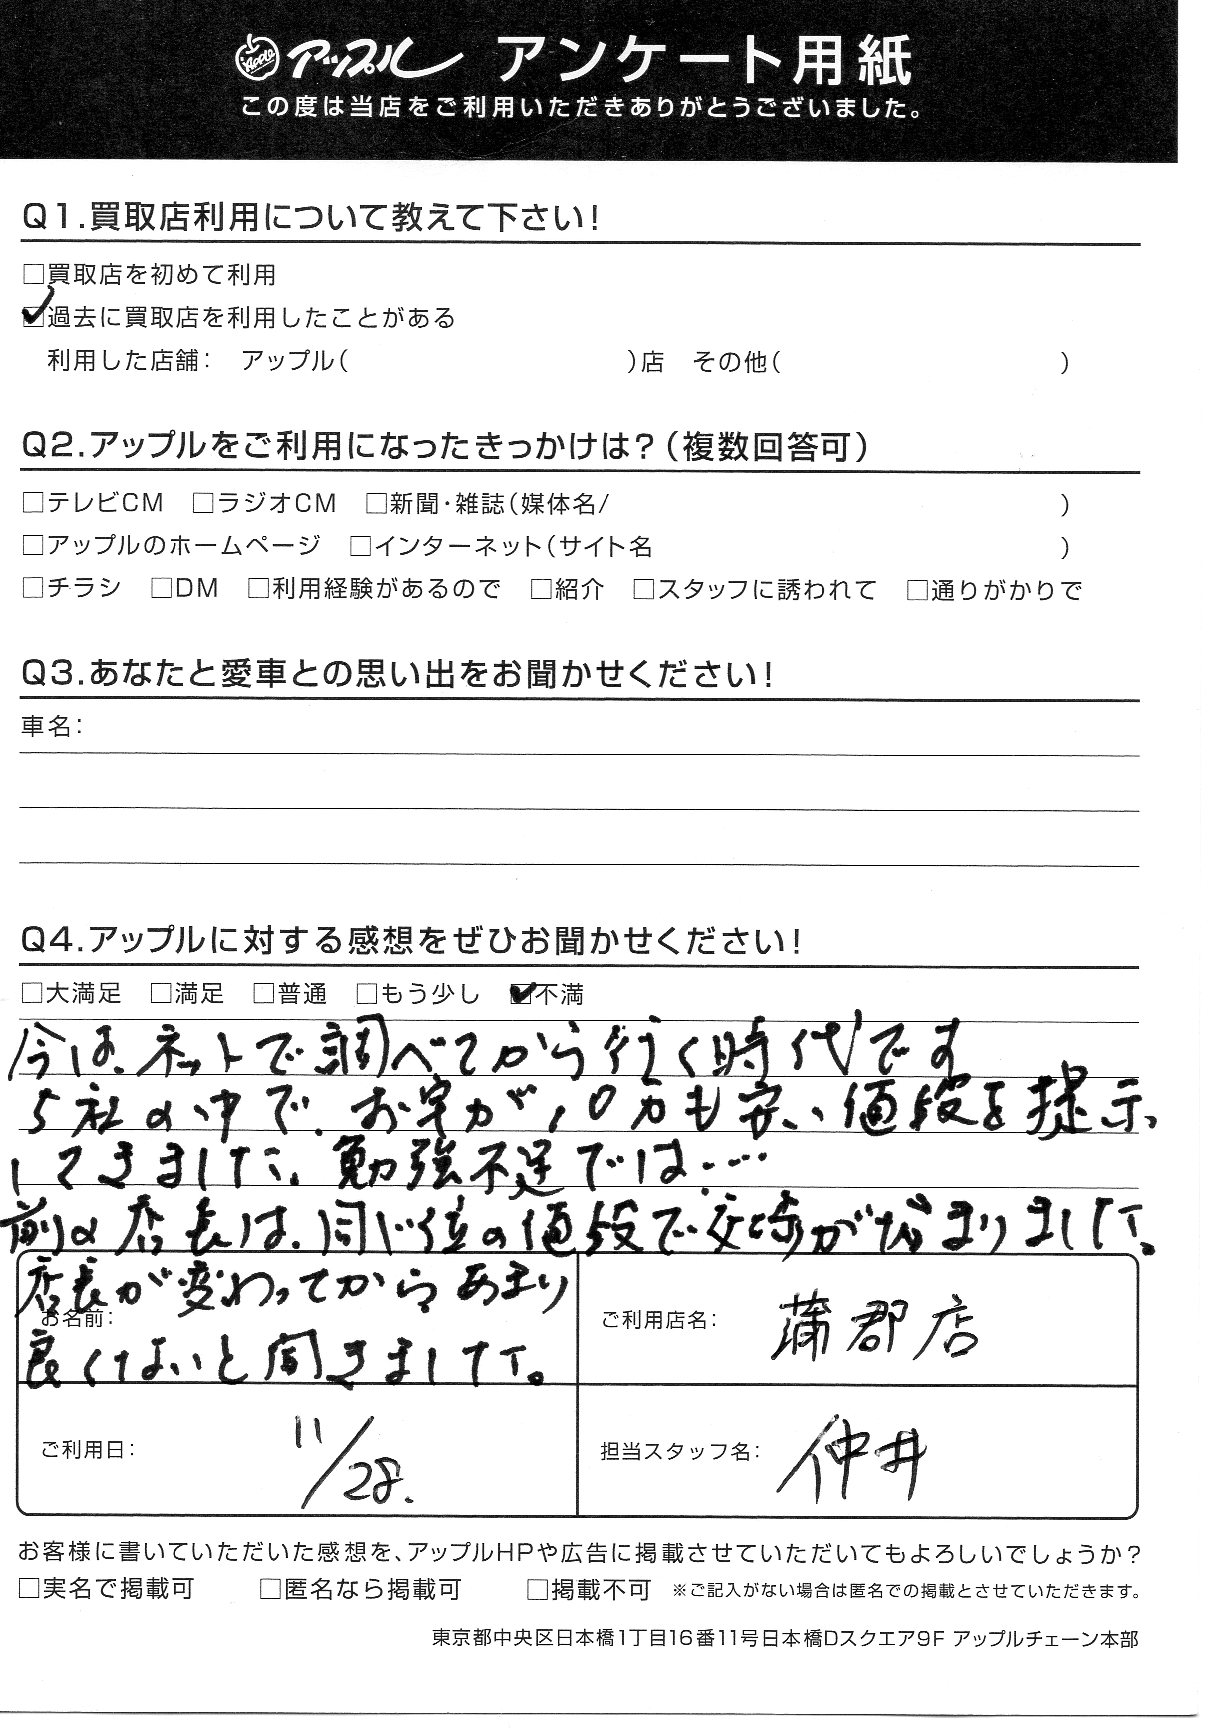 Apple アップル アンケート用紙
この度は当店をご利用いただきありがとうございました。
Q1.買取店利用について教えて下さい!
□買取店を初めて利用
☑過去に買取店を利用したことがある
利用した店舗: アップル( )店 その他( )
Q2.アップルをご利用になったきっかけは?(複数回答可)
□テレビCM □ラジオCM □新聞・雑誌(媒体名/ )
□アップルのホームページ □インターネット(サイト名 )
□チラシ □DM □利用経験があるので □紹介 □スタッフに誘われて □通りがかりで
Q3.あなたと愛車との思い出をお聞かせください!
車名:
Q4.アップルに対する感想をぜひお聞かせください!
□大満足 □満足 □普通 □もう少し ☑不満
今は、ネットで調べてから行く時代です
5社の中で、お宅が、10万も安い値段を提示
してきました。勉強不足では・・・
前の店長は、同じ位の値段で交渉がはまりました。
店長が変わってからあまり
良くないと聞きました。
お名前:
ご利用店名: 蒲郡店
ご利用日: 11/28.
担当スタッフ名: 仲井
お客様に書いていただいた感想を、アップルHPや広告に掲載させていただいてもよろしいでしょうか?
□実名で掲載可 □匿名なら掲載可 □掲載不可 ※ご記入がない場合は匿名での掲載とさせていただきます。
東京都中央区日本橋1丁目16番11号日本橋Dスクエア9F アップルチェーン本部